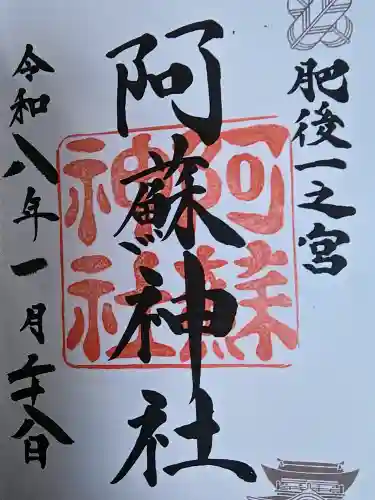 肥後一之宮
阿蘇神社
阿蘇神社
令和八年一月二十八日